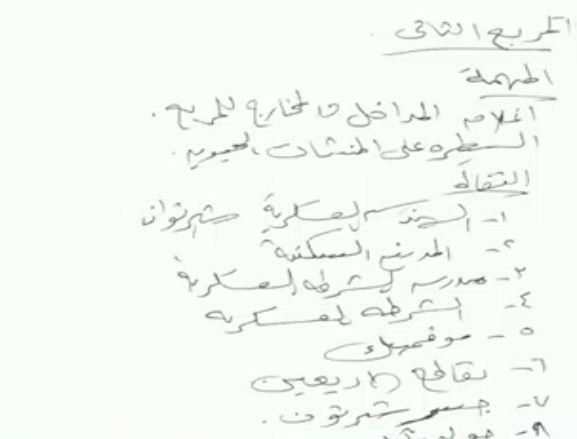 المربع الثاني.
المهمة
اغلاق المداخل و المخارج للمربع.
السيطره على المنشات الحيويه.
النقاط
١- السجن العسكرية شيرتوان
٢- المدينة السكنية
٢- مدرسه الشرطه العسكرية
٤- الشرطه العسكريه
٥- موفمبيك
٦- تقاطع الاربعين
٧- جسر شيرتون.